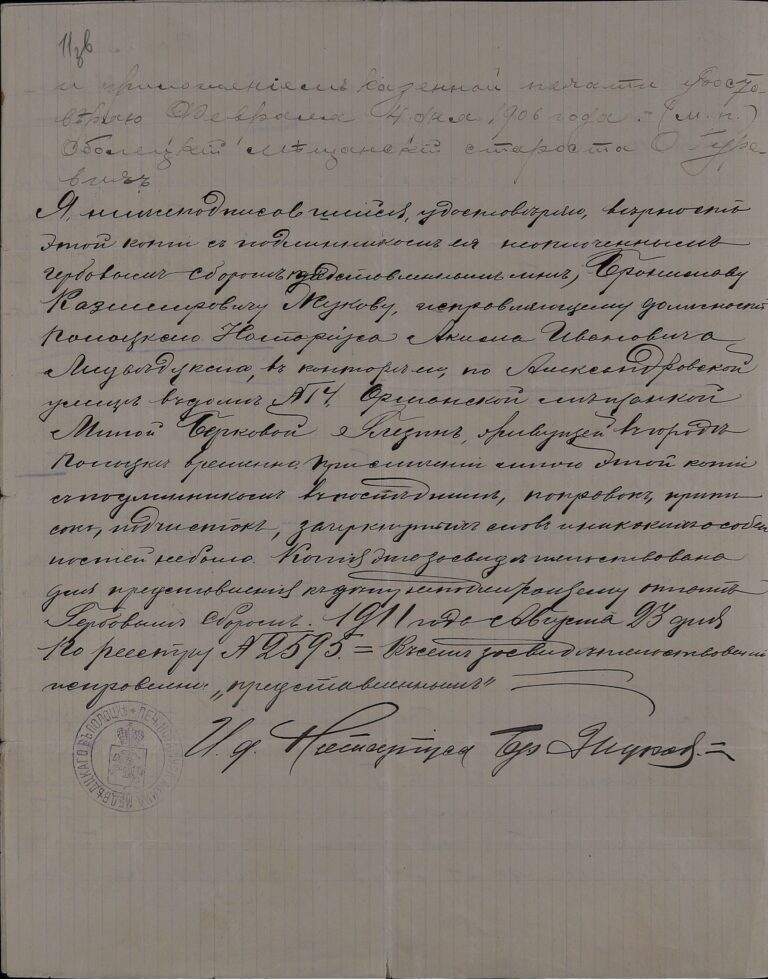 11 зв
и приложеніемъ казенной печати удосто-
вѣряю Февраля 4 дня 1906 года. - (м. п.)
Оболецкій Мѣщанскій староста О Гуре-
вичъ
Я, нижеподписавшійся, удостовѣряю, вѣрность
этой копіи съ подлинникомъ ея неоплаченнымъ
гербовымъ сборомъ представленнымъ мнѣ, Брониславу
Казимировичу Жукову, исправляющему должность
Полоцкаго Нотаріуса Акима Ивановича
въ конторѣ его, по Александровской
улицѣ въ домѣ № 14, Оршанской мѣщанкой
Миной Берковой Глезинъ, живущей въ городѣ
Полоцкѣ временно. При сличеніи мною этой копіи
съ подлинникомъ въ послѣднемъ, поправокъ, припи
сокъ, подчистокъ, зачеркнутыхъ словъ и никакихъ особен
ностей не было. Копія эта засвидѣтельствована
для представленія къ дѣлу неподлежащему оплатѣ
Гербовымъ сборомъ. 1911 года Августа 23 дня
По реестру № 2595. = Въ семъ засвидѣтельствованіи
исправлено: „представленнымъ"
И. д. Нотаріуса Бр Жуковъ =
ПЕЧ. НОТАРІУСА МЕДВѢДЦКАГО ВЪ ПОЛОЦКѢ